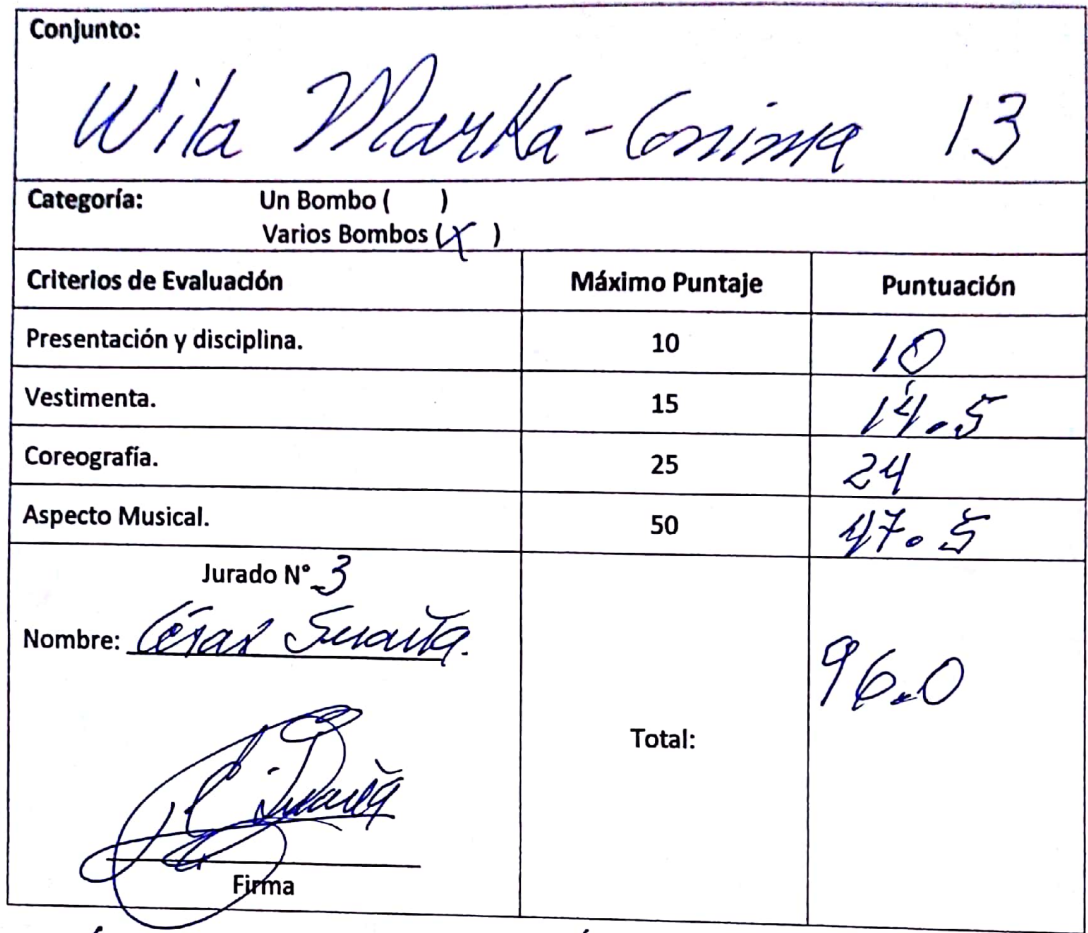 Conjunto:
Wila Marka-Conima 13
Categoría: Un Bombo ( )
Varios Bombos (X)
Criterios de Evaluación Máximo Puntaje Puntuación
Presentación y disciplina. 10 10
Vestimenta. 15 14.5
Coreografía. 25 24
Aspecto Musical. 50 47.5
Jurado N° 3
Nombre: César Suaña.
Total: 96.0
Firma